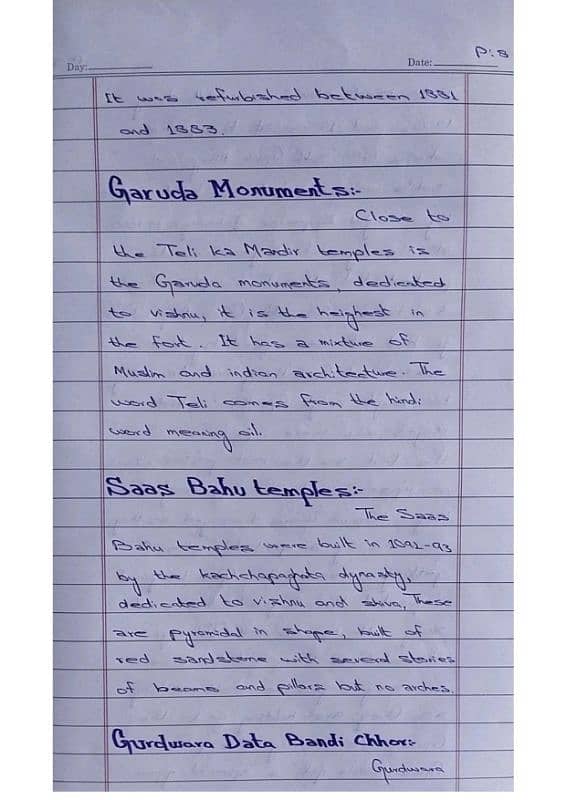 P:8
Day:
Date:
It was refurbished between 1881
and 1883.
Garuda Monuments:-
Close to
the Teli ka Mandir temples is
the Garuda monuments, dedicated
to vishnu, it is the heighest in
the fort. It has a mixture of
Muslim and indian architecture. The
word Teli comes from the hindi
word meaning oil.
Saas Bahu temples:-
The Saas
Bahu temples were built in 1092-93
by the kachchapaghata dynasty,
dedicated to vishnu and shiva, These
are pyramidal in shape, built of
red sandstone with several stories
of beams and pillars but no arches.
Gurdwara Data Bandi Chhor:-
Gurdwara